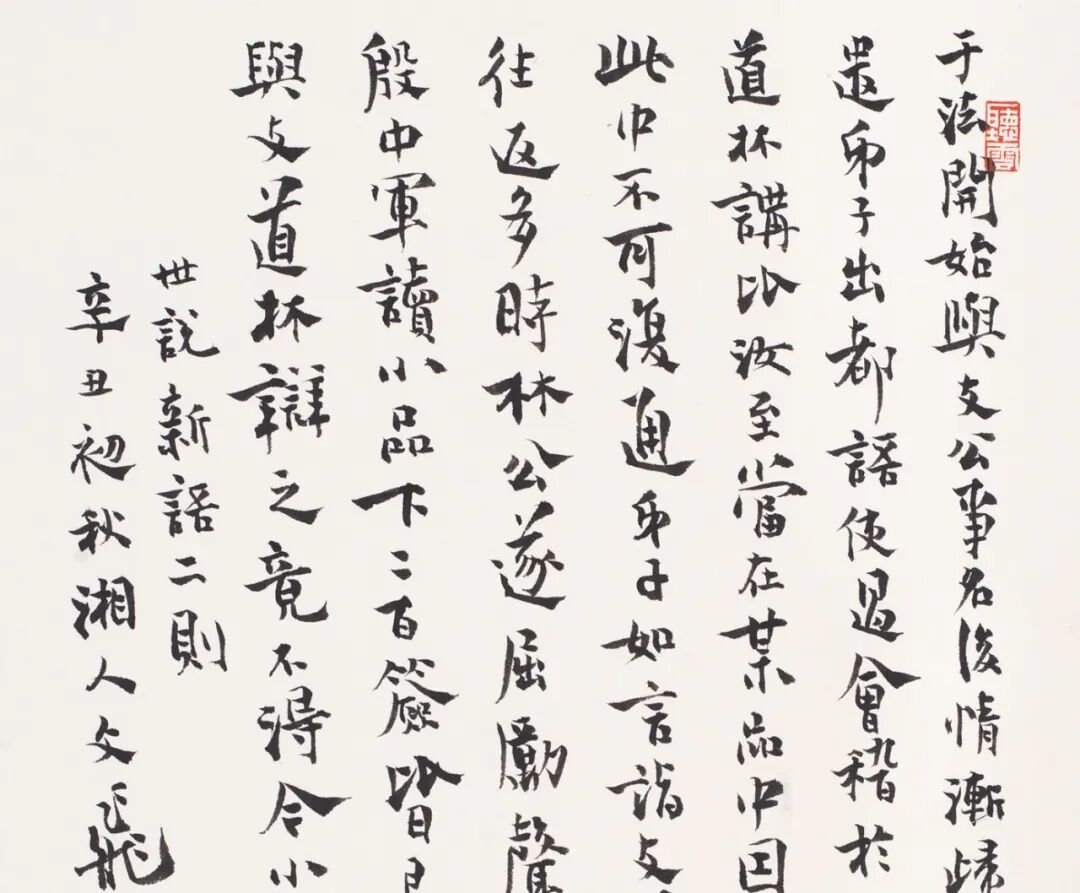 于法開始與支公爭名後情漸歸
遣弟子出都語使過會稽於
道林講比汝至當在某品中因
此中不可復通弟子如言詣支
往返多時林公遂屈勵聲
殷中軍讀小品下二百簽皆
與支道林辯之竟不得今小
世說新語二則
辛丑初秋湘人文